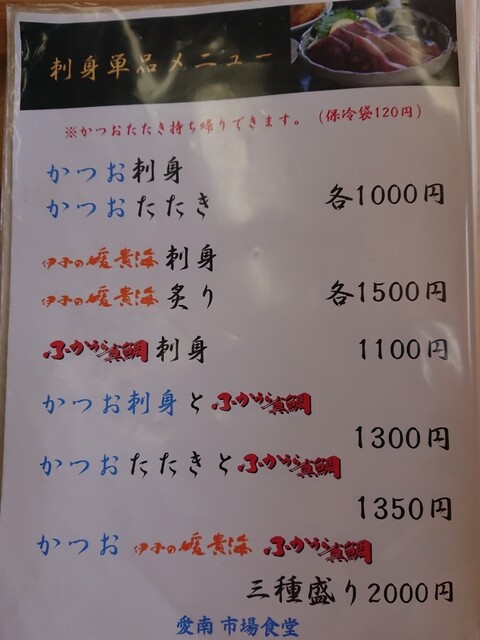 刺身単品メニュー
※かつおたたき持ち帰りできます。(保冷袋120円)
かつお刺身
かつおたたき 各1000円
伊予の媛貴海 刺身
伊予の媛貴海 炙り 各1500円
ふかうら真鯛 刺身 1100円
かつお刺身とふかうら真鯛
1300円
かつおたたきとふかうら真鯛
1350円
かつお 伊予の媛貴海 ふかうら真鯛
三種盛り2000円
愛南市場食堂